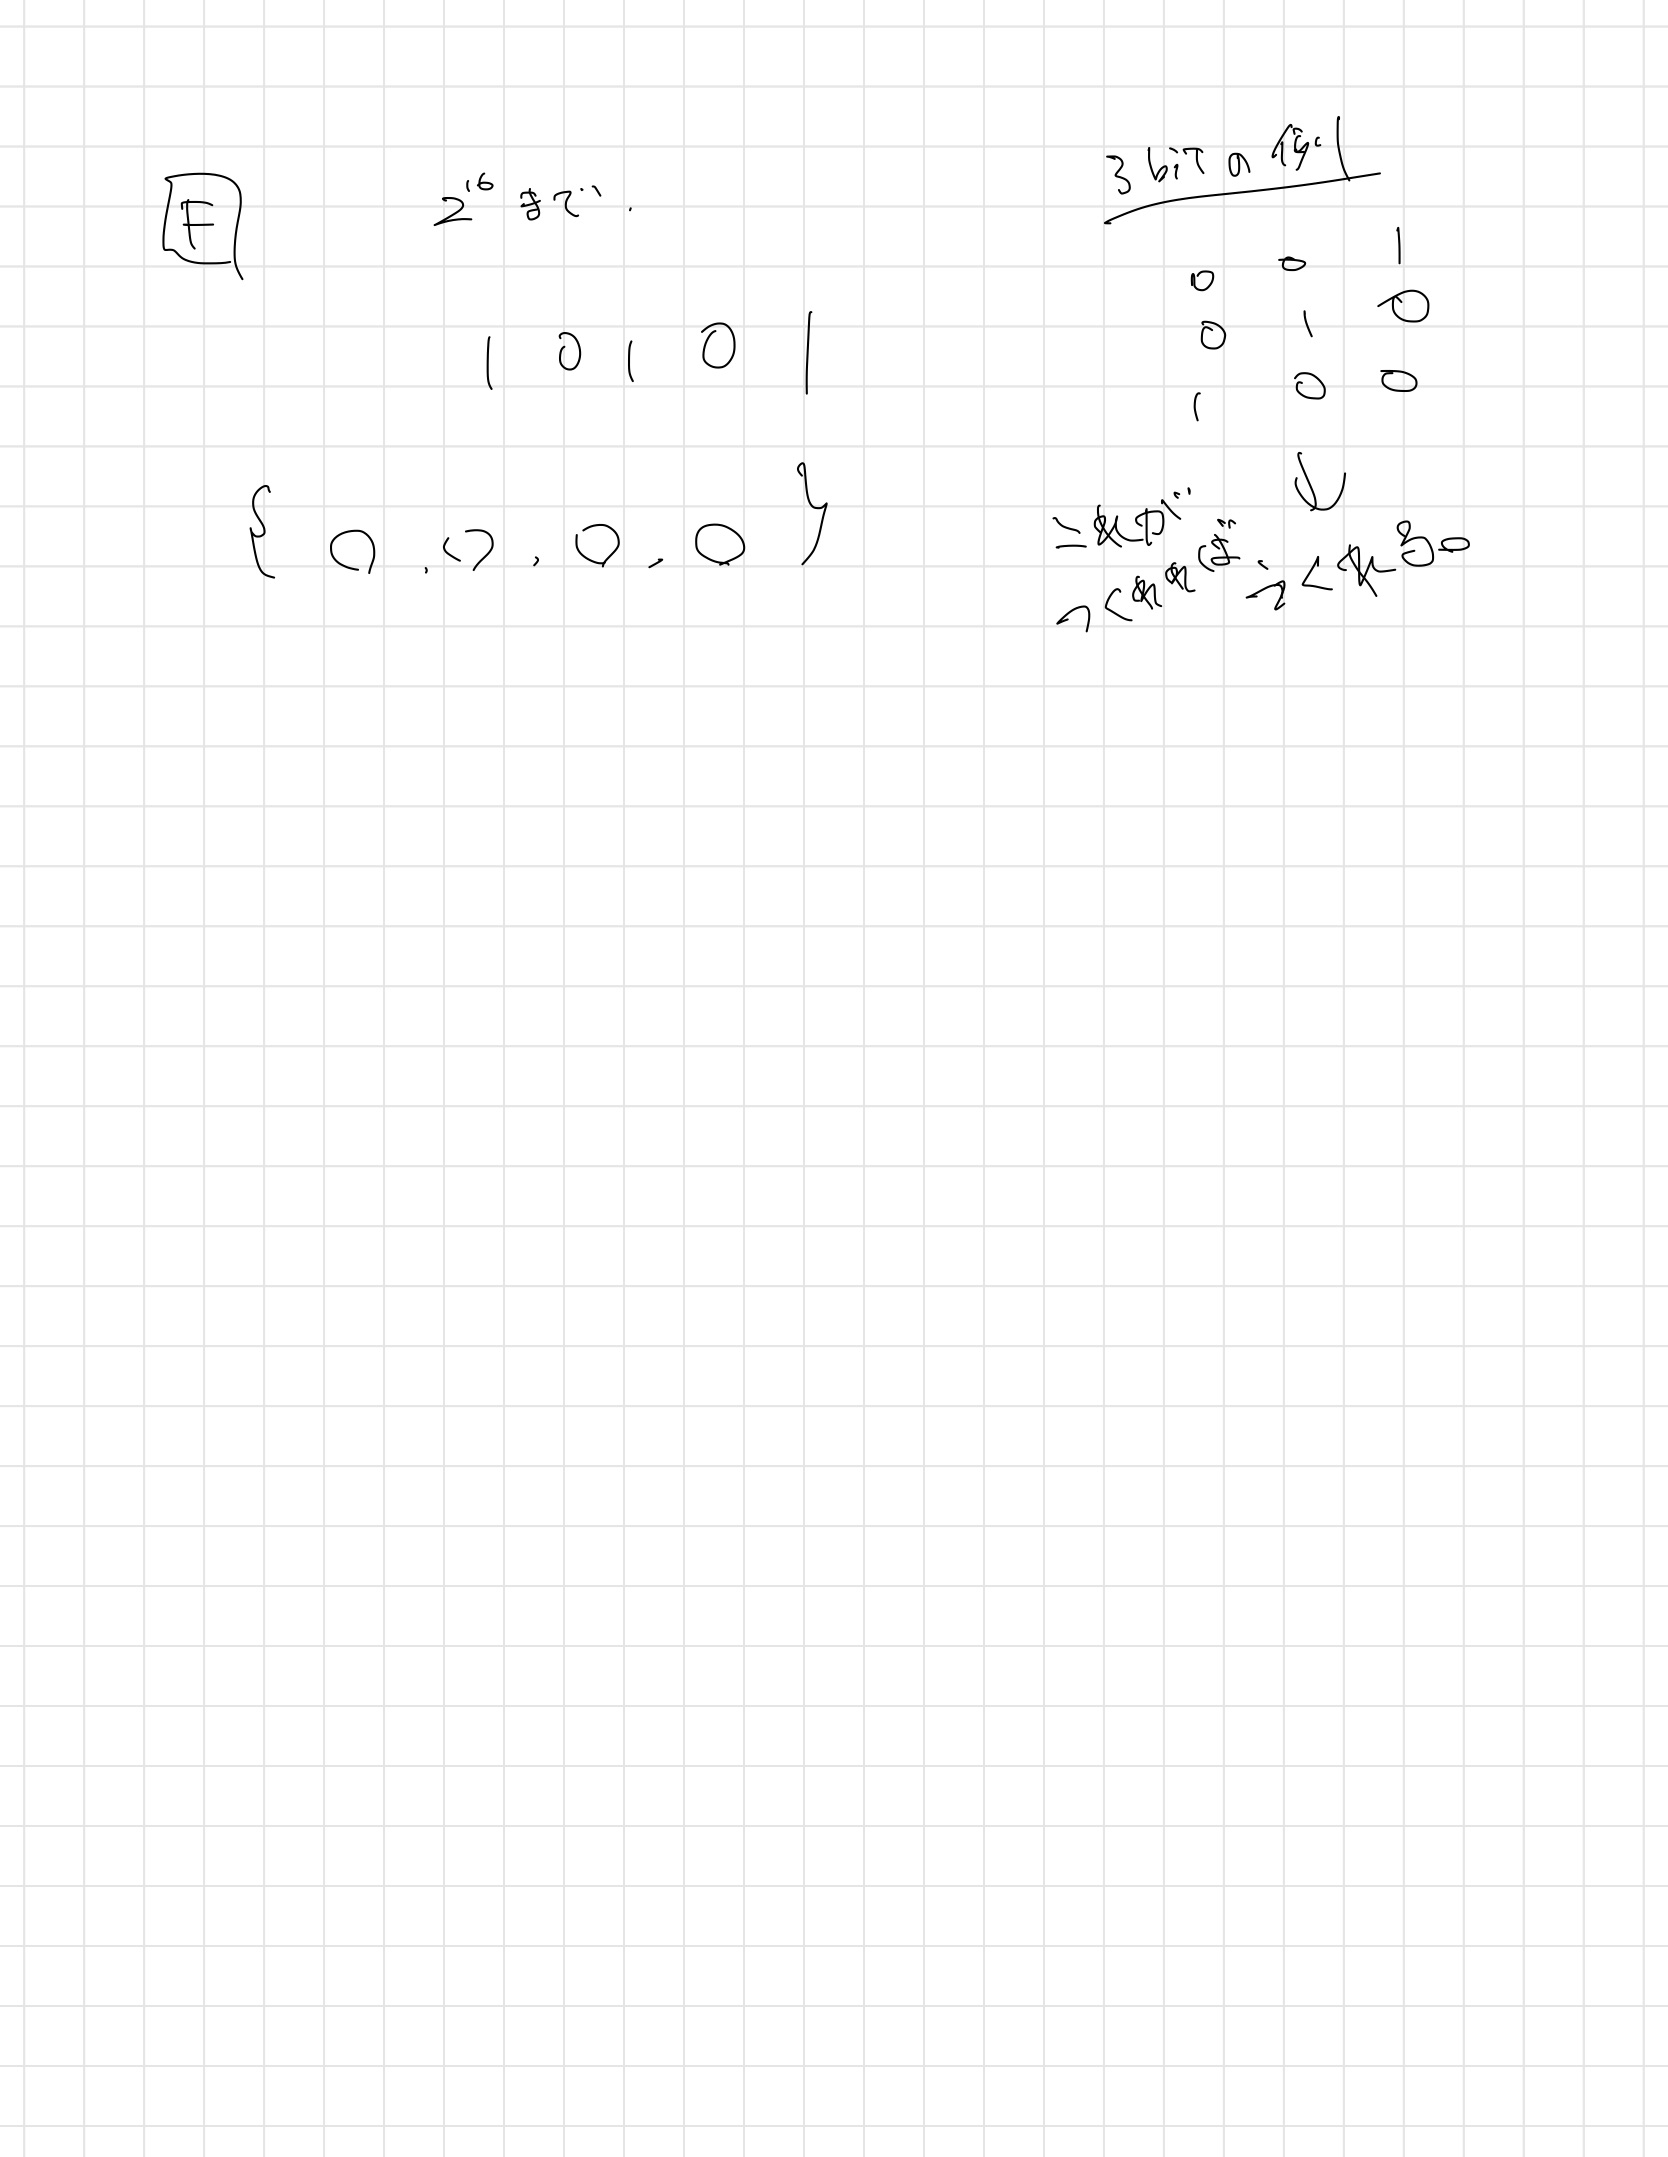 F
2^16 まで.
1 0 1 0 1
{ 0, 0, 0, 0 }
3 bit の例
0 0 1
0 1 0
1 0 0
↓
これが
つくれれば、つくれる。